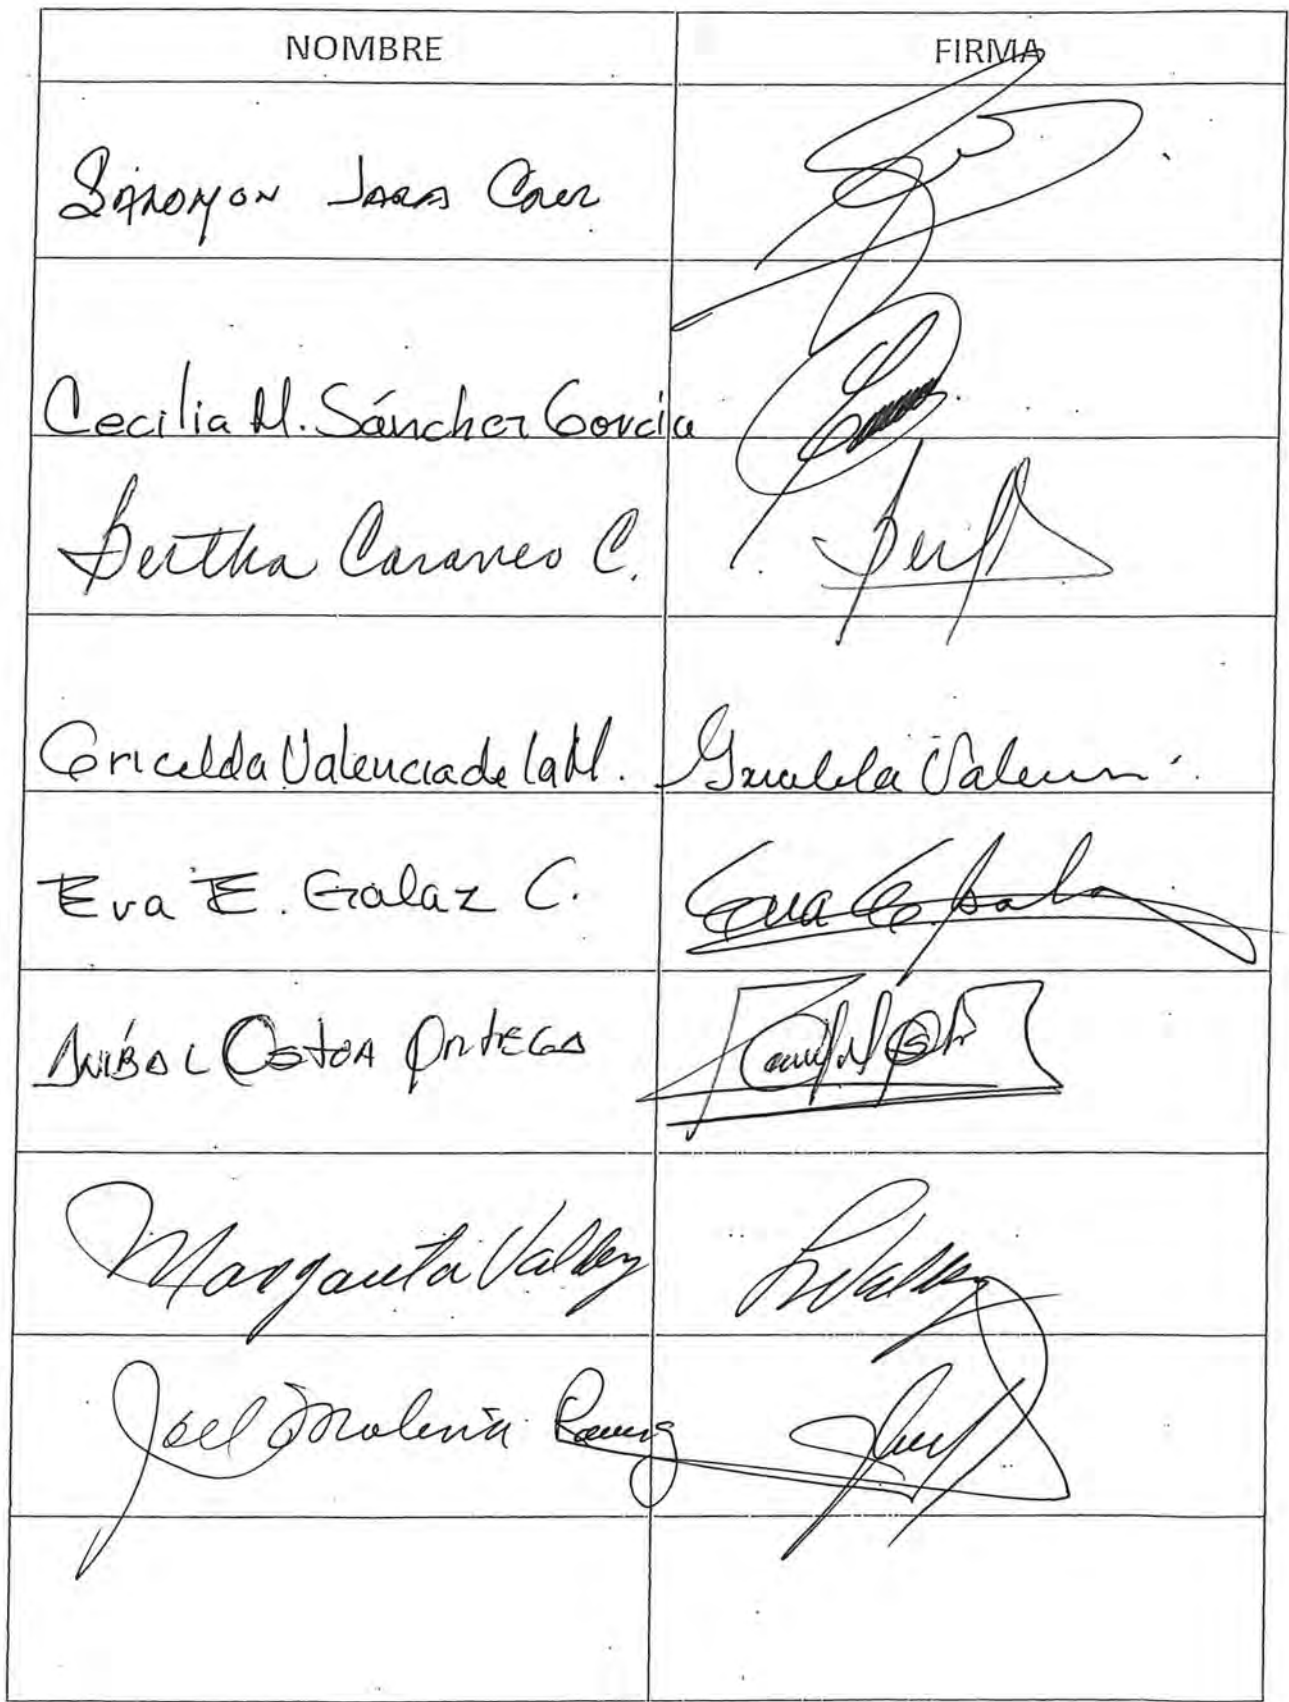 NOMBRE FIRMA
Salomon Jara Cruz
Cecilia M. Sánchez García
Bertha Caraveo C.
Gricelda Valencia de la M. Gricelda Valen
Eva E. Galaz C. Eva E. Galaz
Aníbal Ostoa Ortega
Margarita Valdez Valdez
Joel Molina Ramírez